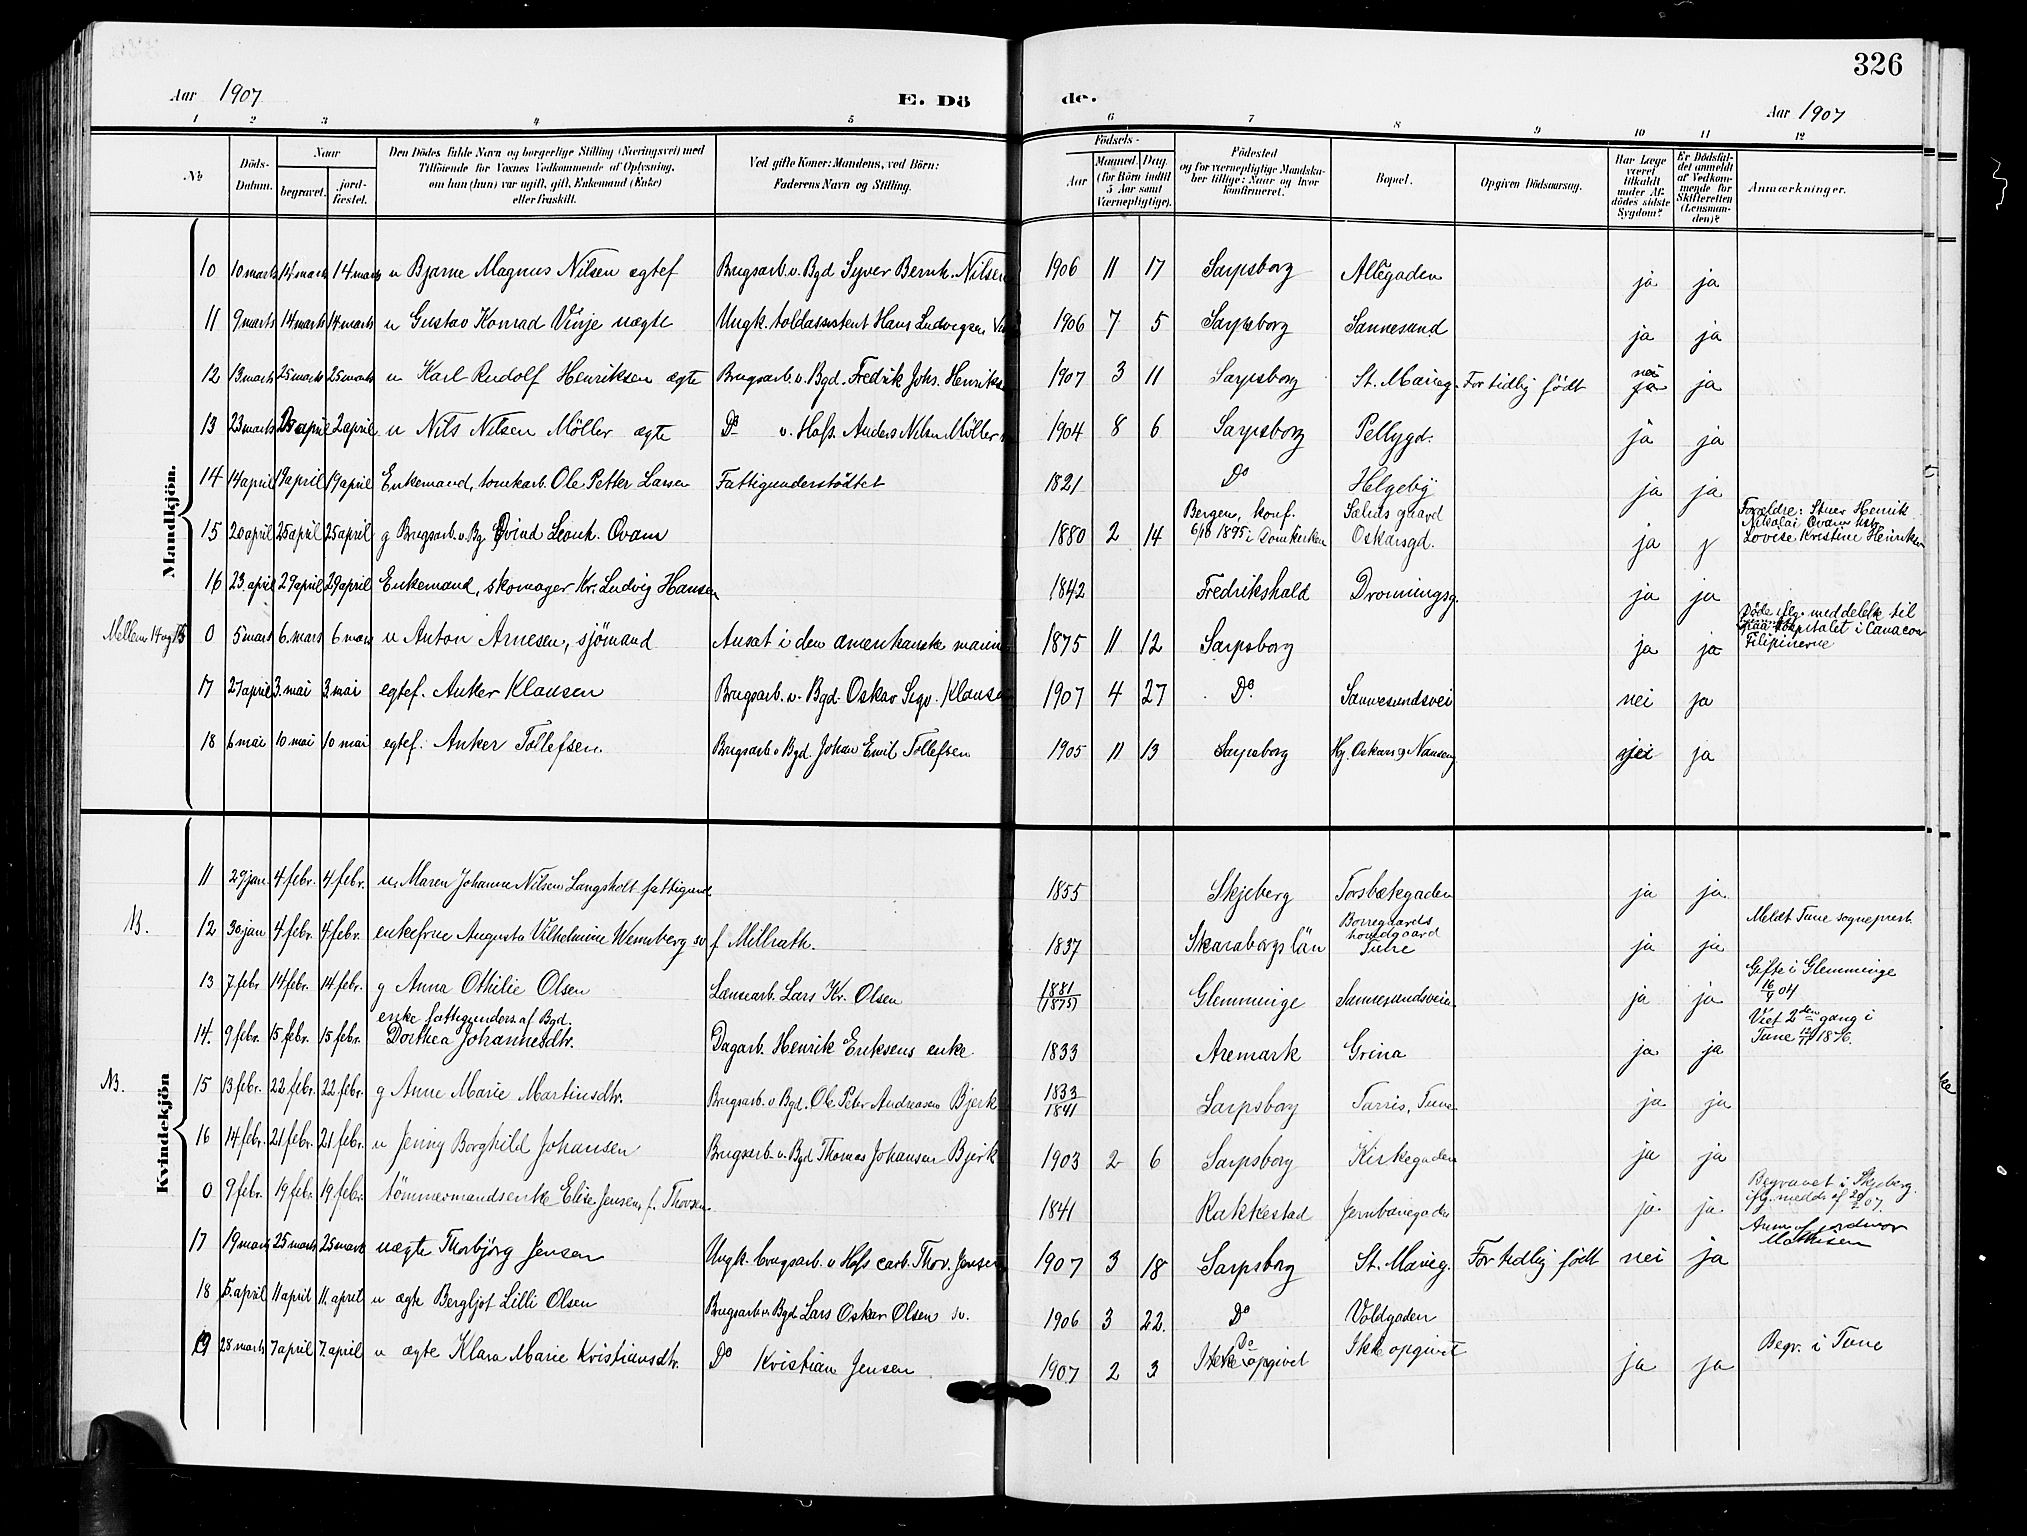 326
Aar 1907 E. Dö de. Aar 1907
1 2 3 4 5 6 7 8 9 10 11 12
No
Döds-Datum.
Naar begravet. jordfæstet.
Den Dödes fulde Navn og borgerlige Stilling (Næringsvei) med Tilföiende for Voxnes Vedkommende af Oplysning, om han (hun) var ugift, gift, Enkemand (Enke) eller fraskilt.
Ved gifte Koner: Mandens, ved Börn: Faderens Navn og Stilling.
Födsels-
Aar Maaned. Dag. (for Börn indtil 5 Aar samt Værnepligtige).
Födested og for værnepligtige Mandskaber tillige: Naar og hvor konfirmeret.
Bopæl.
Opgiven Dödsaarsag.
Har Læge været tilkaldt under Afdödes sidste Sygdom?
Er Dödsfaldet anmeldt af Vedkommende for Skifteretten (Lensmanden)?
Anmærkninger.
Mandkjön.
10 10 marts 14 marts 14 marts u Bjarne Magnus Nilsen egtef Brugsarb. v. Bgd Syver Bernh. Nilsen 1906 11 17 Sarpsborg Allegaden ja ja
11 9 marts 14 marts 14 marts u Gustav Konrad Vinje uægte Ungk. toldassistent Hans Ludvigsen 1906 7 5 Sarpsborg Sannesund ja ja
12 13 marts 25 marts 25 marts u Karl Rudolf Henriksen ægte Brugsarb. v. Bgd. Fredrik Johs. Henriksen 1907 3 11 Sarpsborg St. Marieg. For tidlig födt nei ja ja
13 23 marts 2 april 2 april u Nils Nilsen Möller ægte Do v. Hafs. Anders Nilsen Möller 1904 8 6 Sarpsborg Pellygd. ja ja
14 14 april 19 april 19 april Enkemand, tomtearb. Ole Petter Larsen Fattigunderstödtet 1821 Do Helgeby ja ja
15 20 april 25 april 25 april g Brugsarb. v. Bg Eivind Leonh. Ovam 1880 2 14 Bergen, konf. 6/10 1895 i Domkirken Oskarsgd. ja Forældre: Stuer Henrik Nikolai Ovam Lovise Kristine Henriksen
16 23 april 29 april 29 april Enkemand, skomager Kr. Ludvig Hansen 1842 Fredrikshald Dronningsg. ja ja
Mellem 14 og 15 0 5 mars 6 mars 6 mars u Anton Arnesen, sjömand Ansat i den amerikanske marine 1875 11 12 Sarpsborg ja ja Döde ifg. meddelelse til hospitalet i Canacao Filipinerne
17 27 april 3. mai 3 mai egtef. Anker Klausen Brugsarb. v. Bgd. Oskar Sigv. Klausen 1907 4 27 Do. Sannesundsvei nei ja
18 6 mai 10 mai 10 mai egtef. Anker Tollefsen. Brugsarb v Bgd. Johan Emil Tollefsen 1905 11 13 Sarpsborg Hj. Oskars g Nanseng nei ja
Kvindekjön
11 29 jan. 4 febr. 4 febr. u. Maren Johanne Nilsen Langsholt fattigund 1855 Skjeberg Torsbækgaden ja ja
NB. 12 30 jan 4 febr. 4 febr. enkefrue Augusta Vilhelmine Wennberg sv f Millrath. 1837 Skaraborgs län Borregaards hovedgaard Tune ja ja Meldt Tune sogneprest.
13 7 febr 14 febr. 14 febr. g Anna Othilie Olsen Lænsearb. Lars Kr. Olsen 1881 (1875) Glemminge Sannesundsveien ja ja Gifte i Glemminge 16/9 04
14. 9 febr. 15 febr. 15 febr. enke fattigunders. af Bgd. Dorthea Johannesdtr. Dagarb. Henrik Eriksens enke. 1833 Aremark Grina ja ja Viet 2den gang i Tune 12/11 1876.
NB. 15 13 febr. 22 febr. 22 febr. g Anne Marie Martinsdtr. Brugsarb. v Bgd. Ole Peter Andreasen Bjerk 1833 1841 Sarpsborg Tarris, Tune ja ja
16 14 febr. 21 febr. 21 febr. u Jenny Borghild Johansen Brugsarb. v. Bgd Thomas Johansen Bjerk 1903 2 6 Sarpsborg Kirkegaden ja ja
0 9 febr. 19 febr. 19 febr. tömmermandsenke Elise Jensen, f. Thorsen 1841 Rakkestad Jernbanegaden ja ja. Begravet i Skjeberg ifg. medd. af 20/2 07.
17 19 marts 25 marts 25 marts uægte Thorbjörg Jensen Ungk. brugsarb. v Hafs carb. Thor. Jensen 1907 3 18 Sarpsborg St. Marieg. For tidlig födt nei ja Anm. af jordmor Mathisen
18 5. april 11 april 11. april u ægte Bergljot Lilli Olsen Brugsarb v. Bgd Lars Oskar Olsen sv. 1906 3 22. Do Voldgaden
19 28 marts 7 april 7. april u ægte Klara Marie Kristiansdtr. Do Kristian Jensen 1907 2 3 Do Ikke opgivet Ikke opgivet ja ja Begr. i Tune